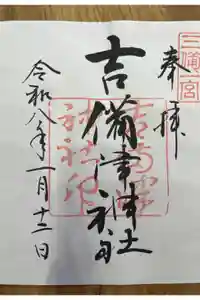 三備一宮
奉拝
吉備津神社
令和八年一月十二日